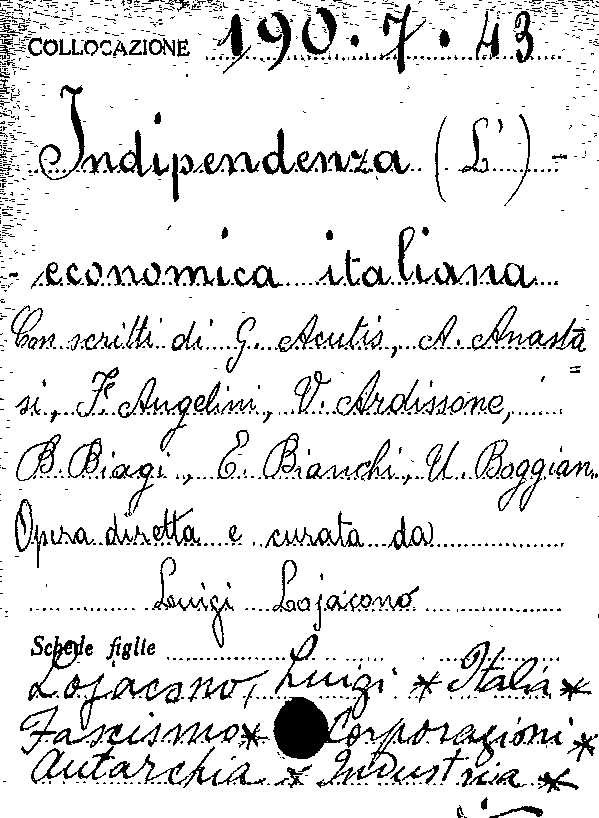 COLLOCAZIONE 190.7.43
Indipendenza (L') -
- economica italiana
Con scritti di G. Acutis, A. Anasta
si, F. Angelini, V. Ardissone,
B. Biagi, E. Bianchi, U. Boggian..
Opera diretta e curata da
Luigi Lojacono
Schede figlie
Lojacono, Luigi * Italia *
Fascismo * Corporazioni *
Autarchia * Industria *